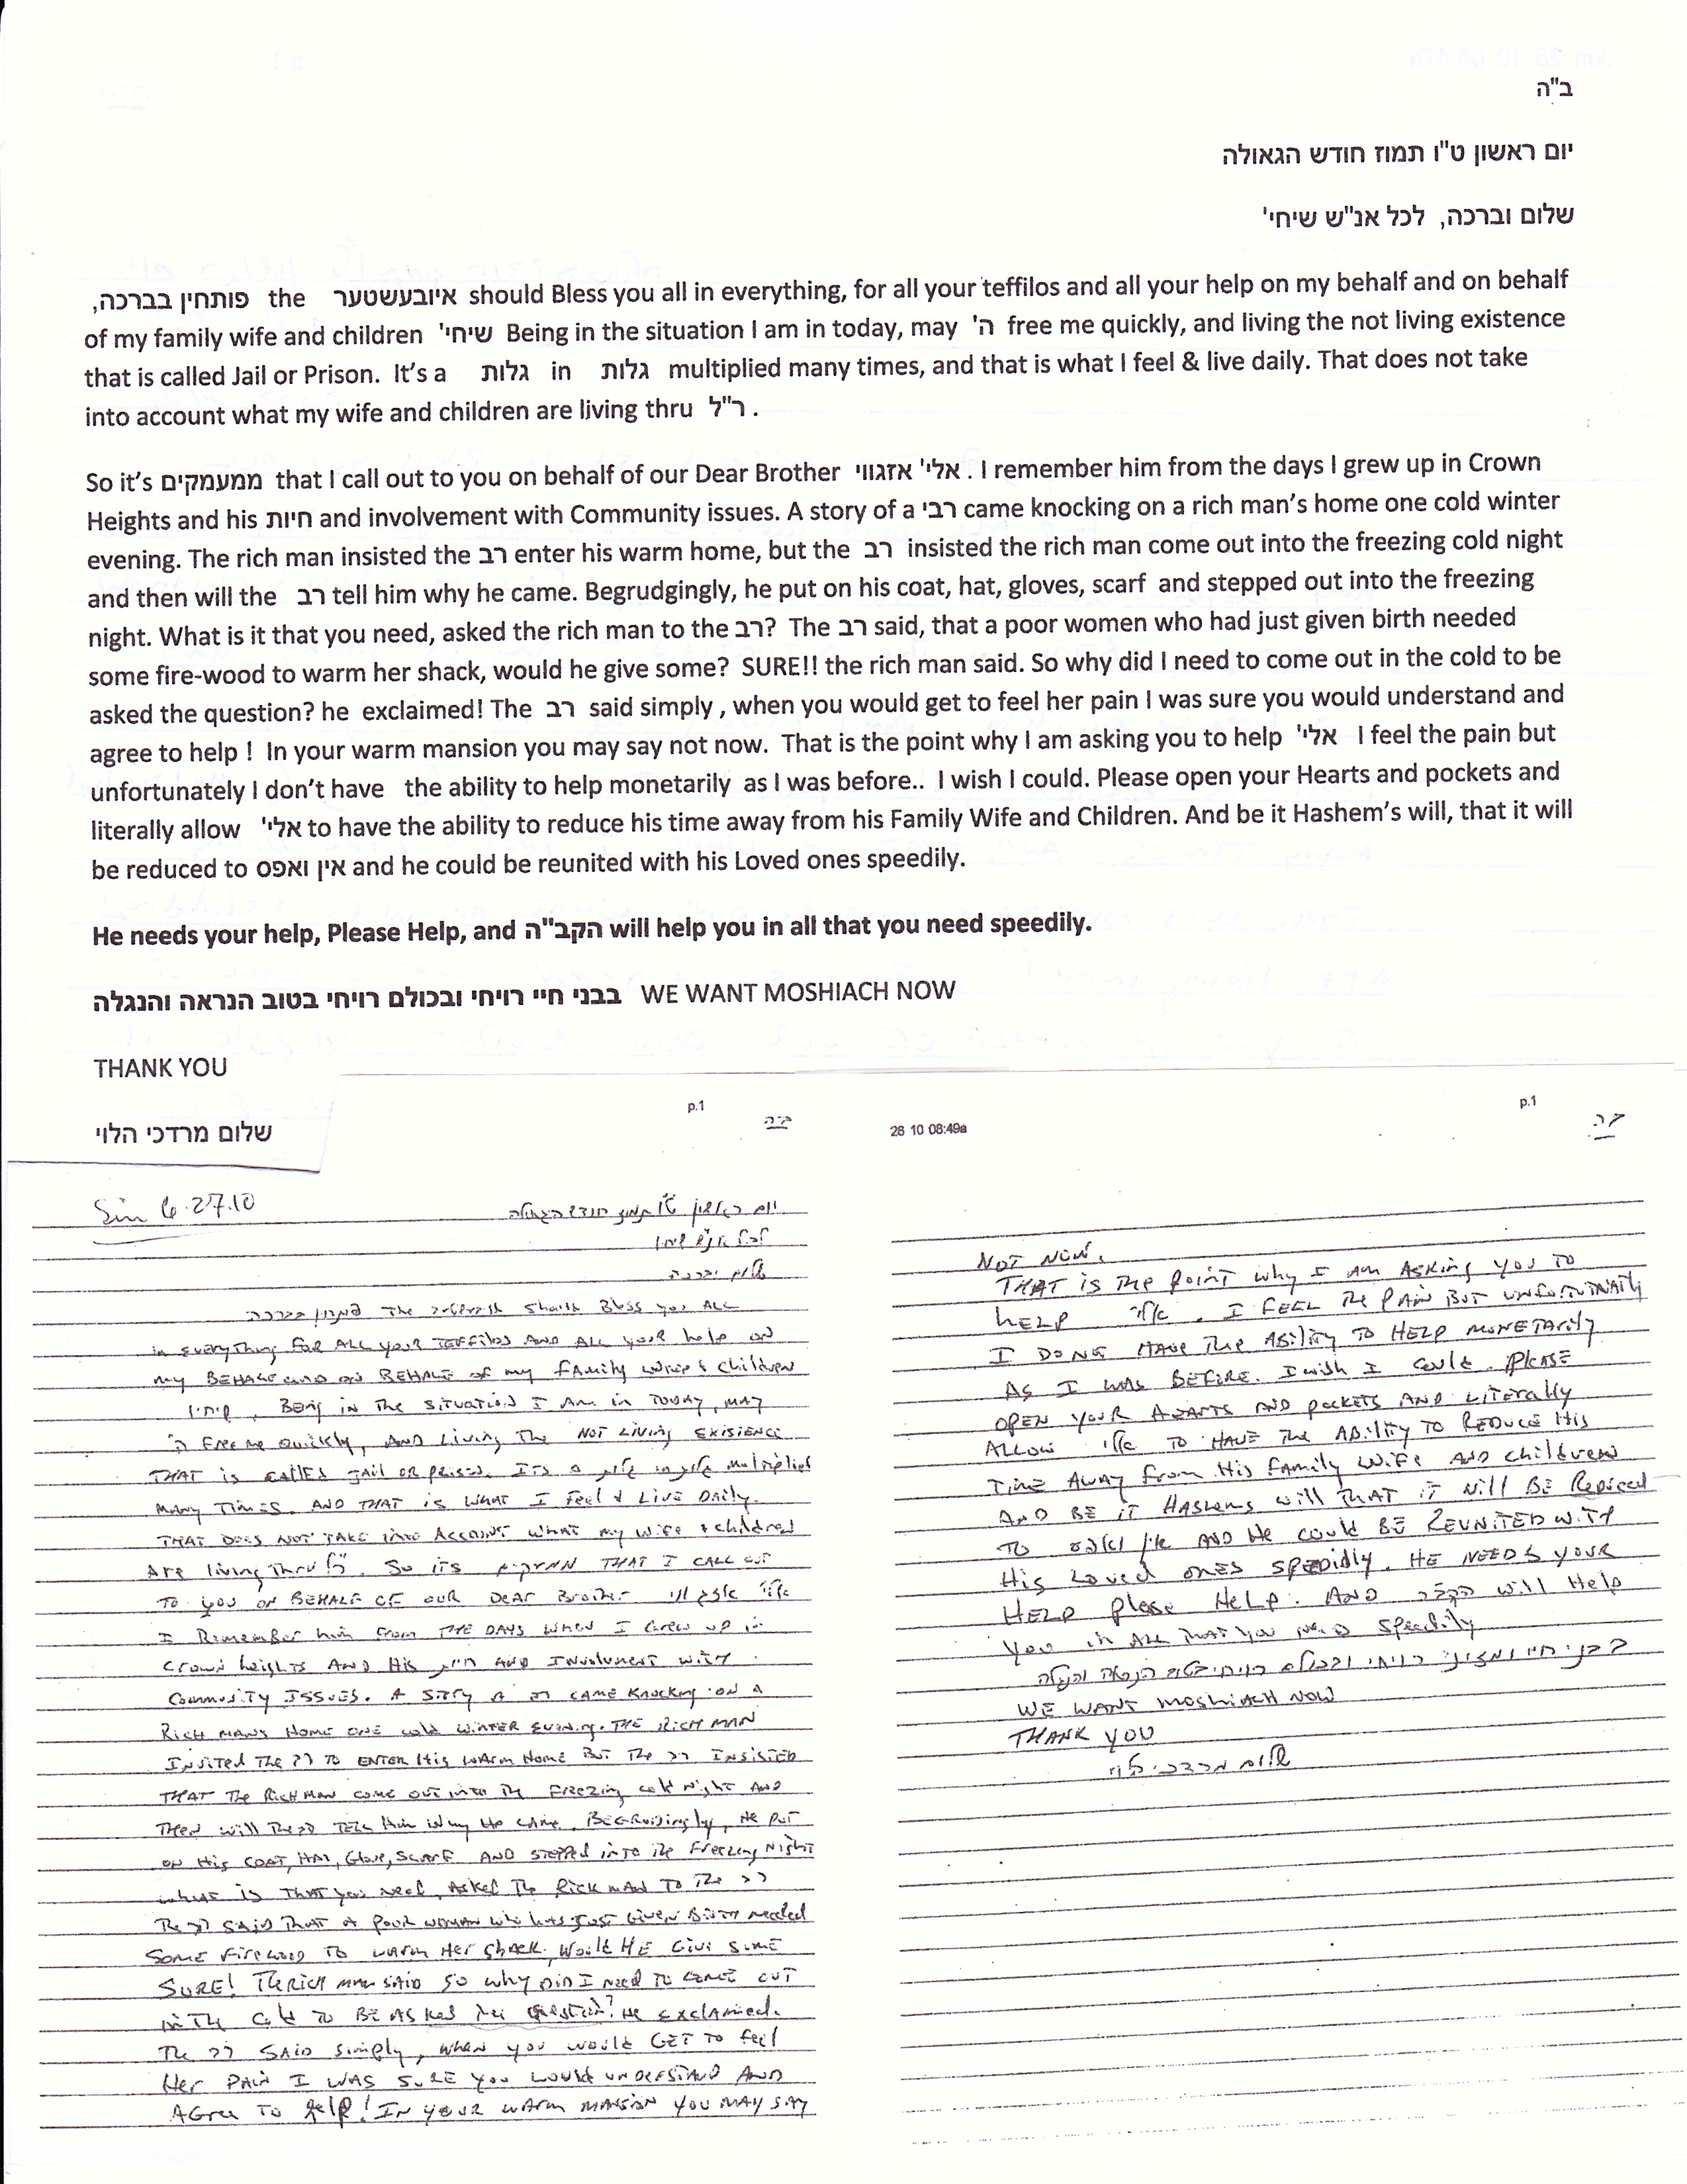 ב"ה
יום ראשון ט"ו תמוז חודש הגאולה
שלום וברכה, לכל אנ"ש שיחי'
פותחין בברכה, the אויבעשטער should Bless you all in everything, for all your teffilos and all your help on my behalf and on behalf
of my family wife and children שיחי' Being in the situation I am in today, may ה' free me quickly, and living the not living existence
that is called Jail or Prison. It's a גלות in גלות multiplied many times, and that is what I feel & live daily. That does not take
into account what my wife and children are living thru ר"ל .
So it's ממעמקים that I call out to you on behalf of our Dear Brother אלי' אזגווי . I remember him from the days I grew up in Crown
Heights and his חיות and involvement with Community issues. A story of a רבי' came knocking on a rich man's home one cold winter
evening. The rich man insisted the רב enter his warm home, but the רב insisted the rich man come out into the freezing cold night
and then will the רב tell him why he came. Begrudgingly, he put on his coat, hat, gloves, scarf and stepped out into the freezing
night. What is it that you need, asked the rich man to the רב? The רב said, that a poor women who had just given birth needed
some fire-wood to warm her shack, would he give some? SURE!! the rich man said. So why did I need to come out in the cold to be
asked the question? he exclaimed! The רב said simply , when you would get to feel her pain I was sure you would understand and
agree to help ! In your warm mansion you may say not now. That is the point why I am asking you to help אלי' I feel the pain but
unfortunately I don't have the ability to help monetarily as I was before.. I wish I could. Please open your Hearts and pockets and
literally allow אלי' to have the ability to reduce his time away from his Family Wife and Children. And be it Hashem's will, that it will
be reduced to אין ואפס and he could be reunited with his Loved ones speedily.
He needs your help, Please Help, and הקב"ה will help you in all that you need speedily.
בבני חיי רויחי ובכולם רויחי בטוב הנראה והנגלה WE WANT MOSHIACH NOW
THANK YOU
שלום מרדכי הלוי
p.1
ב"ה
Sun 6.27.10
יום ראשון ט"ו תמוז חודש הגאולה
לכל אנ"ש שיחיו
שלום וברכה
פותחין בברכה The אויבערשטער should Bless you ALL
in everything FOR ALL your TEFFILOS AND ALL your help on
my BEHALF AND ON BEHALF of my family wife & children
שיחיו, Being in the SITUATION I AM in TODAY, MAY
ה' Free me quickly, AND Living The NOT LIVING EXISTENCE
THAT is CALLED JAIL OR PRISON. ITS a גלות in גלות multiplied
MANY TIMES. AND THAT is WHAT I feel & LIVE DAILY.
THAT DOES NOT TAKE INTO ACCOUNT WHAT my wife & children
Are living Thru ר"ל. So its ממעמקים THAT I CALL OUT
TO you ON BEHALF OF our Dear Brother אלי' אזגווי
I Remember him From THE DAYS WHEN I Grew up in
Crown heights AND His חיות AND INVOLVMENT WITH
Community ISSUES. A STORY a רב CAME Knocking ON A
RICH MANS HOME ONE cold WINTER Evening. THE RICH MAN
INSISTED The רב TO ENTER His WARM Home BUT The רב INSISTED
THAT The RICH MAN come out into The Freezing cold Night AND
Then will The רב TELL him why He came. BEGRUDINGLY, He PUT
on His COAT, HAT, Glove, SCARF AND STEPPED into the Freezing Night
what is THAT you need, ASKED The RICH MAN To The רב
The רב SAID THAT A poor woman who has JUST GIVEN BIRTH needed
SOME Firewood To WARM Her shack. Would HE GIVE SOME
SURE! The RICH MAN SAID SO Why DID I need To COME OUT
in The Cold TO BE ASKED The Question? He EXCLAIMED.
The רב SAID simply, when you would GET To feel
Her PAIN I WAS SURE YOU would UNDERSTAND AND
AGree To help! IN YOUR WARM MANSION YOU MAY SAY
26 10 08:49a
p.1
ב"ה
NOT NOW.
THAT is The point why I am ASKING you TO
HELP אלי'. I FEEL The PAIN BUT UNFORTUNATLY
I DO NOT HAVE The ABility TO HELP MONETARILY
AS I WAS BEFORE. I wish I could. PLEASE
OPEN YOUR HEARTS AND POCKETS AND Literally
ALLOW אלי' TO HAVE The ABility TO REDUCE His
Time Away from His Family Wife AND Children
AND BE iT HASHEMS Will THAT iT Will BE Reduced
TO אין ואפס AND He could BE REUNITED WITH
His Loved ones speedily. HE NEEDS your
HELP please HELP. AND הקב"ה will Help
you in ALL THAT you need speedily
בבני חיי ומזוני רויחי ובכולם רויחי בטוב הנראה והנגלה
WE WANT MOSHIACH NOW
THANK YOU
שלום מרדכי הלוי